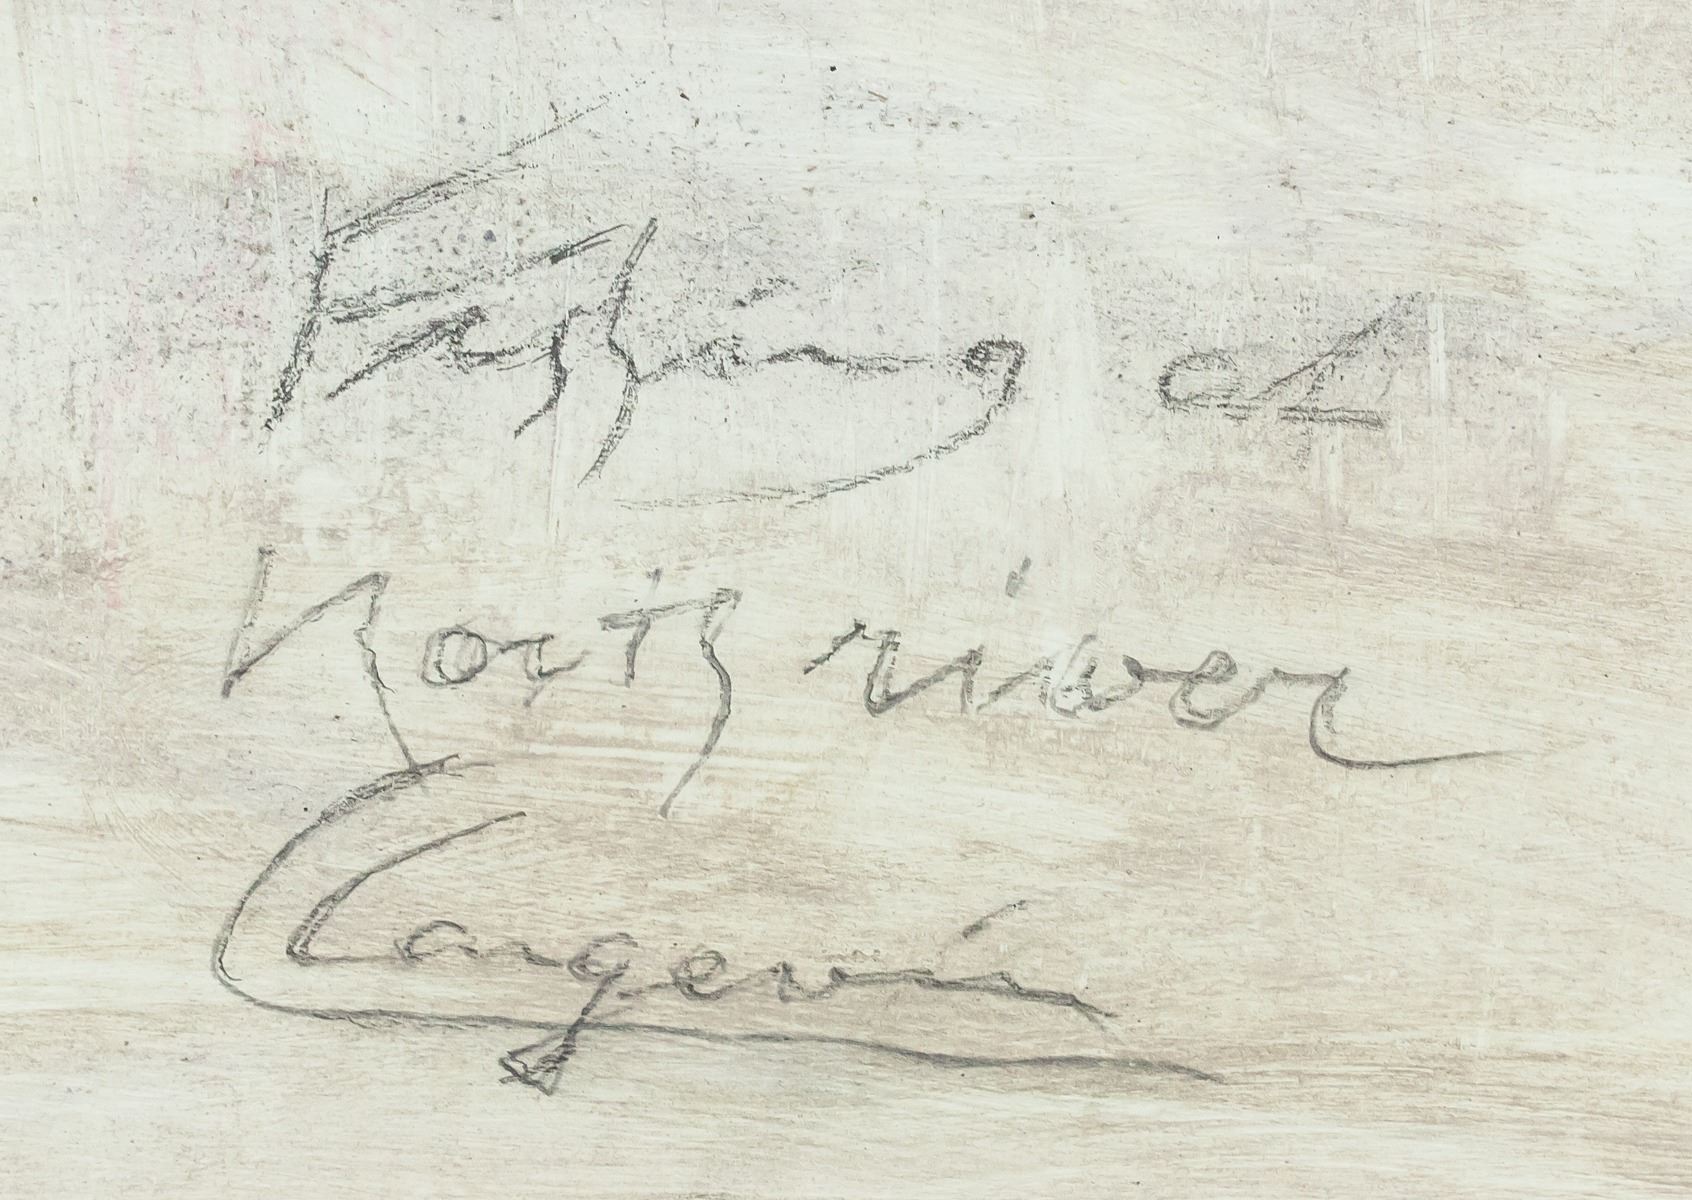 Fishing at
North river
Langevin